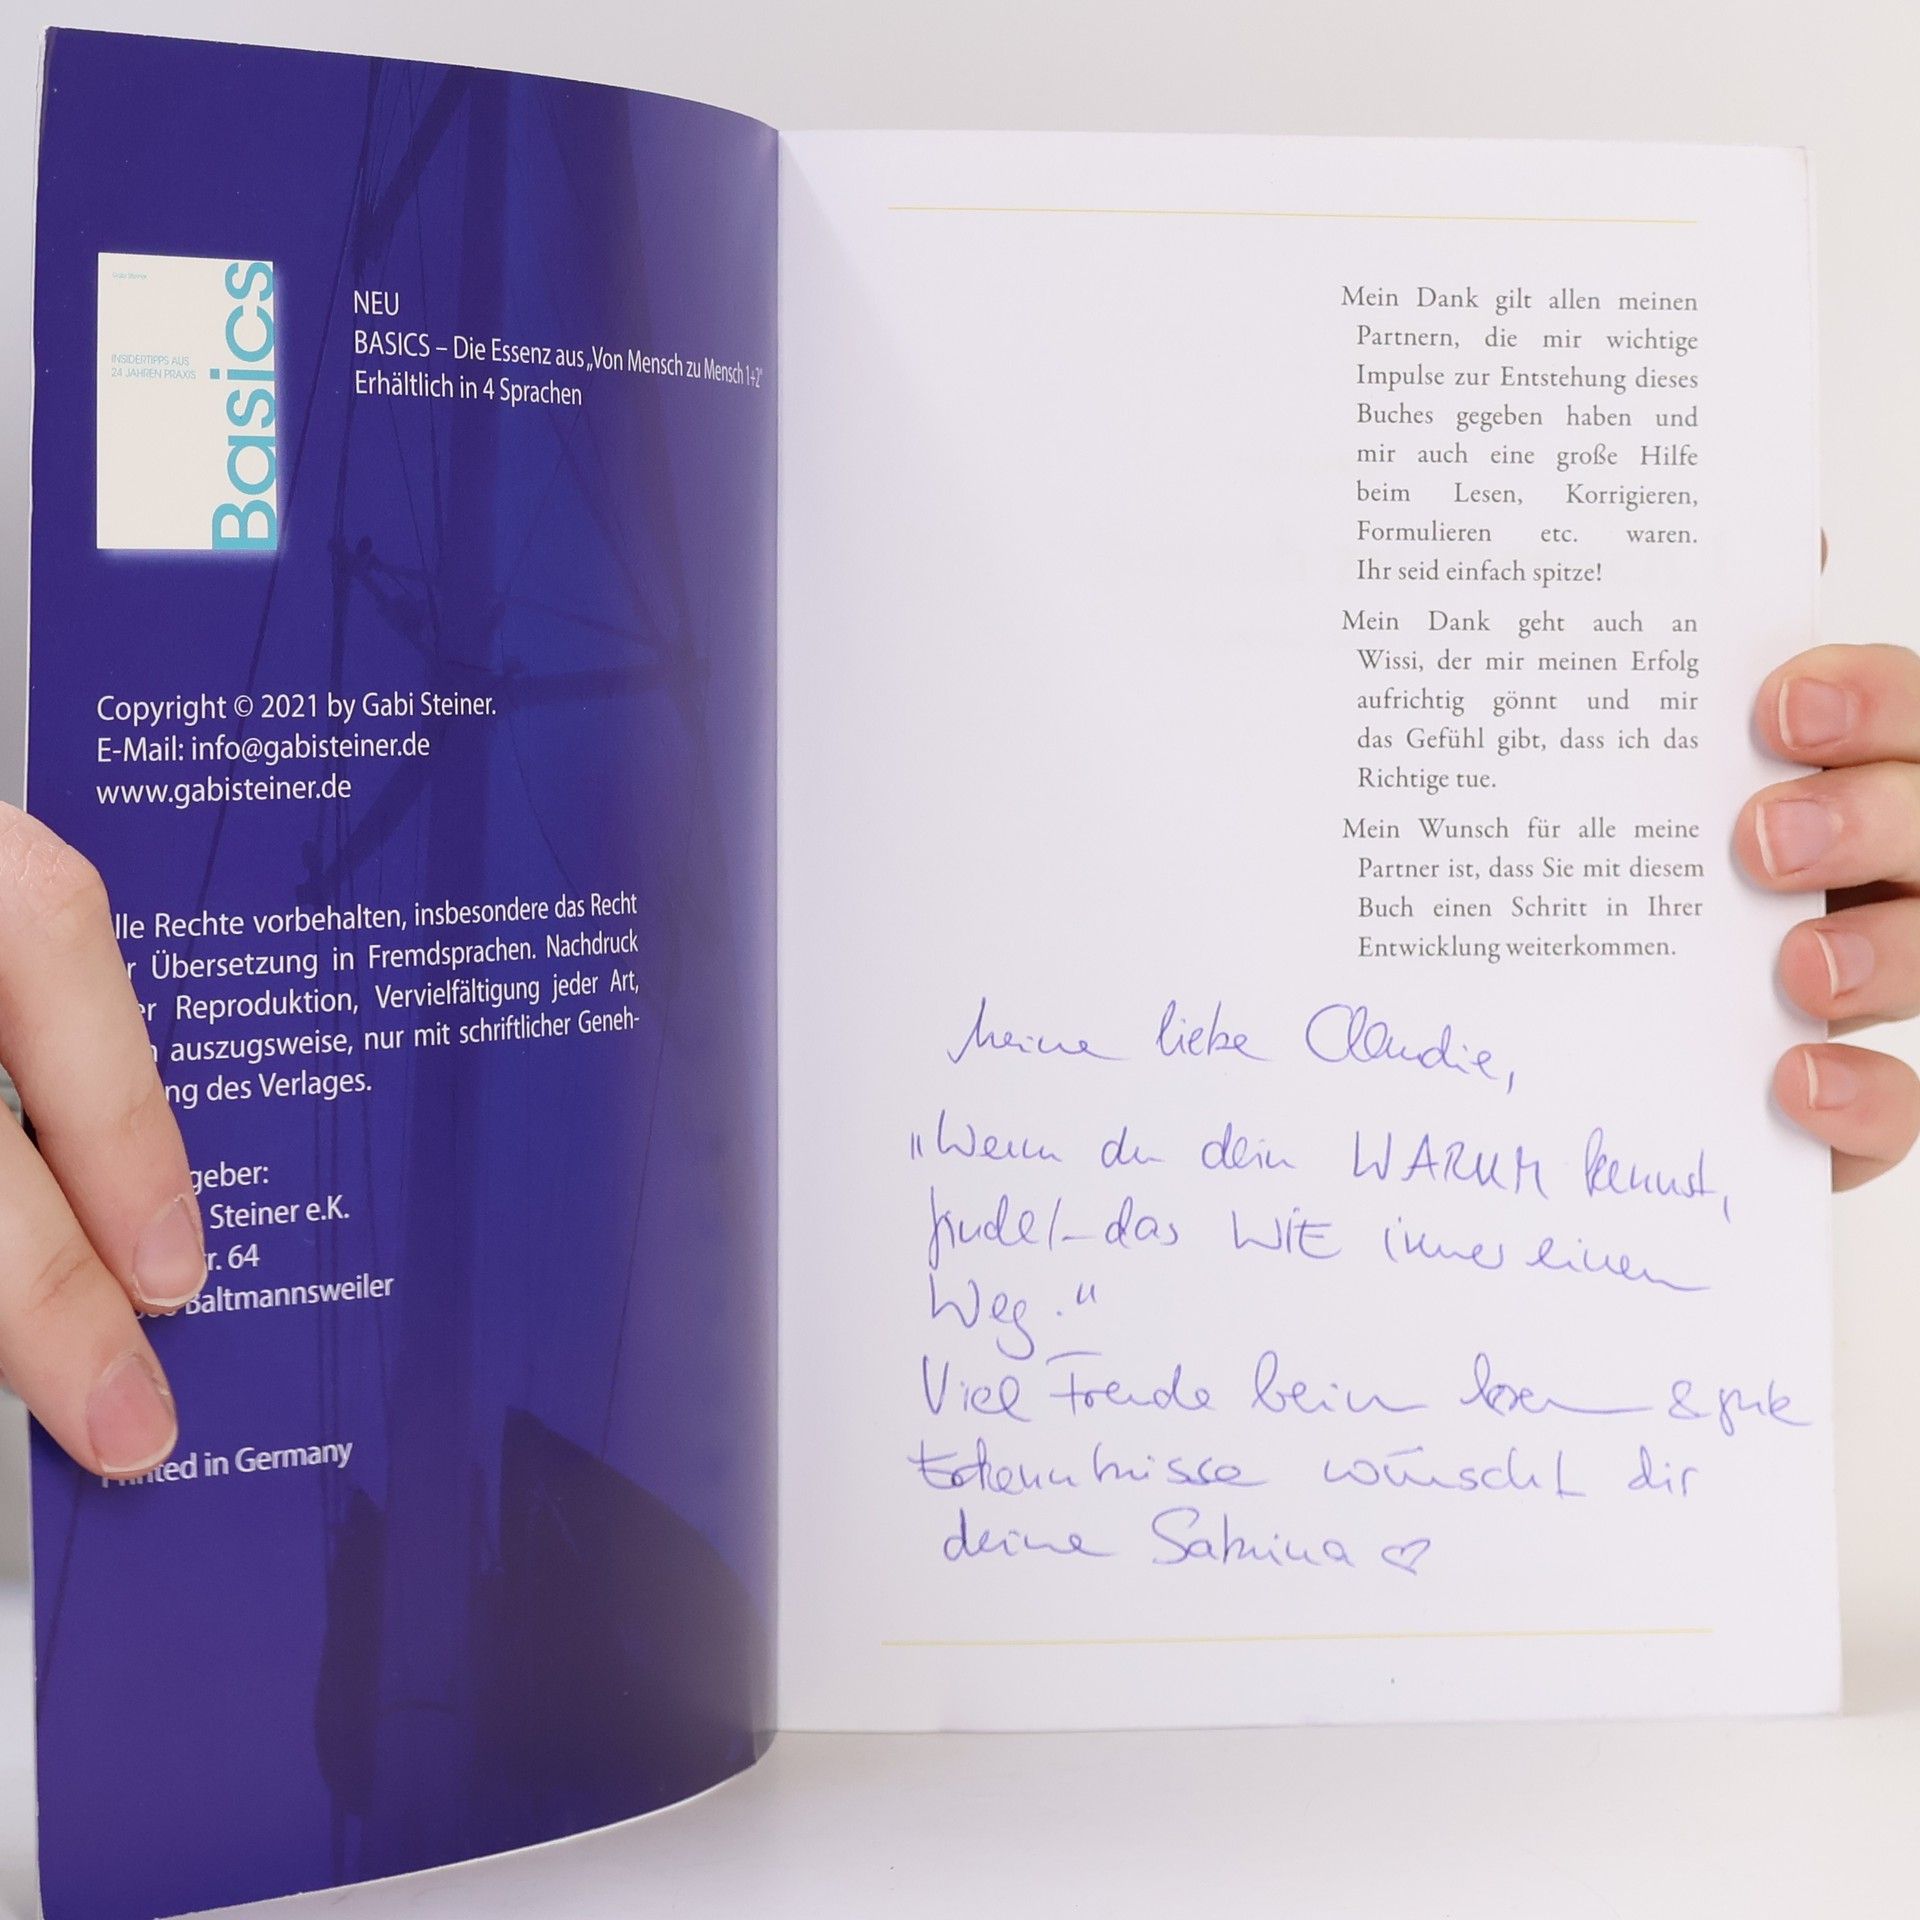 Gabi Steiner
INSIDERTIPPS AUS
24 JAHREN PRAXIS
Basics
NEU
BASICS – Die Essenz aus „Von Mensch zu Mensch 1+2"
Erhältlich in 4 Sprachen
Copyright © 2021 by Gabi Steiner.
E-Mail: info@gabisteiner.de
www.gabisteiner.de
lle Rechte vorbehalten, insbesondere das Recht
r Übersetzung in Fremdsprachen. Nachdruck
er Reproduktion, Vervielfältigung jeder Art,
auszugsweise, nur mit schriftlicher Geneh-
ng des Verlages.
geber:
Steiner e.K.
r. 64
Baltmannsweiler
Printed in Germany
Mein Dank gilt allen meinen
Partnern, die mir wichtige
Impulse zur Entstehung dieses
Buches gegeben haben und
mir auch eine große Hilfe
beim Lesen, Korrigieren,
Formulieren etc. waren.
Ihr seid einfach spitze!
Mein Dank geht auch an
Wissi, der mir meinen Erfolg
aufrichtig gönnt und mir
das Gefühl gibt, dass ich das
Richtige tue.
Mein Wunsch für alle meine
Partner ist, dass Sie mit diesem
Buch einen Schritt in Ihrer
Entwicklung weiterkommen.
Meine liebe Claudie,
„Wenn du dein WARUM kennst,
findet das WIE immer einen
Weg."
Viel Freude beim lesen & gute
Erkenntnisse wünscht dir
deine Sabrina ♡